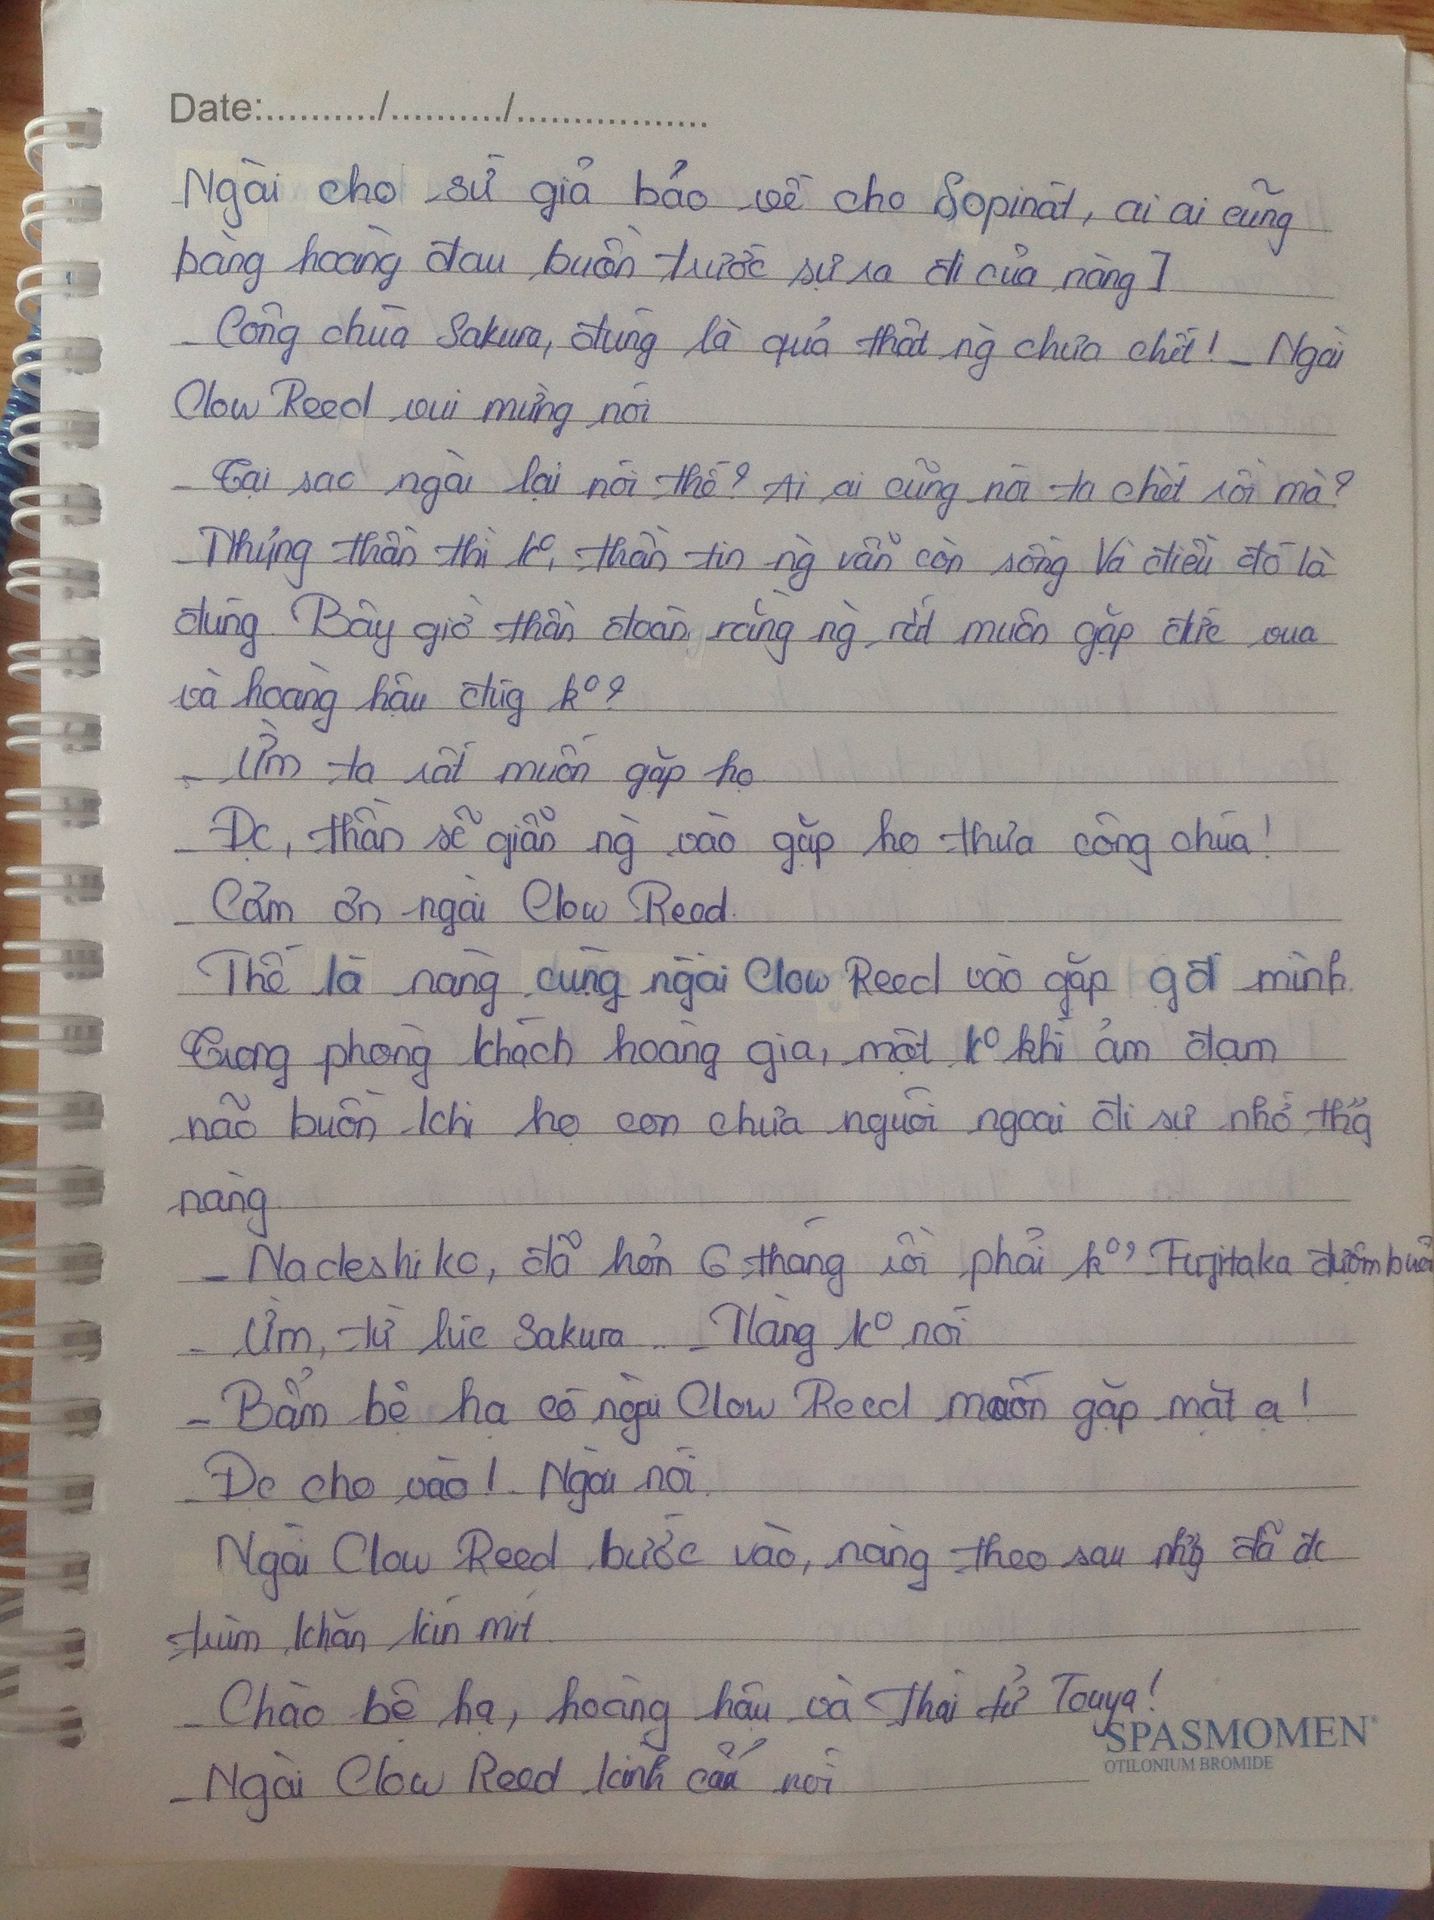 Date:........../........../.................
Ngài cho sứ giả báo về cho Sopinat, ai ai cũng
bàng hoàng đau buồn trước sự ra đi của nàng]
_ Công chúa Sakura, đúng là quả thật ng chưa chết! _ Ngài
Clow Reed vui mừng nói
_ Tại sao ngài lại nói thế? Ai ai cũng nói ta chết rồi mà?
_ Nhưng thần thì kº, thần tin ng vẫn còn sống Và điều đó là
đúng Bây giờ thần đoán rằng ng rất muốn gặp đức vua
và hoàng hậu đúg kº?
_ Ừm ta rất muốn gặp họ
_ Đc, thần sẽ giẫn ng vào gặp họ thưa công chúa!
_ Cảm ơn ngài Clow Reed.
Thế là nàng cùng ngài Clow Reed vào gặp gđ mình.
Trong phòng khách hoàng gia, một kº khí ảm đạm
não buồn khi họ con chưa nguôi ngoai đi sự nhớ thg
nàng
_ Nadeshiko, đã hơn 6 tháng rồi phải kº, Fujitaka đượm buồn
_ Ừm, từ lúc Sakura .. _ Nàng kº nói
_ Bẩm bệ hạ có ngài Clow Reed muốn gặp mặt ạ!
_ Đc cho vào! _ Ngài nói.
Ngài Clow Reed bước vào, nàng theo sau nhg đã đc
trùm khăn kín mít
_ Chào bệ hạ, hoàng hậu và Thái tử Touya!
_ Ngài Clow Reed kính cẩn nói
SPASMOMEN®
OTILONIUM BROMIDE